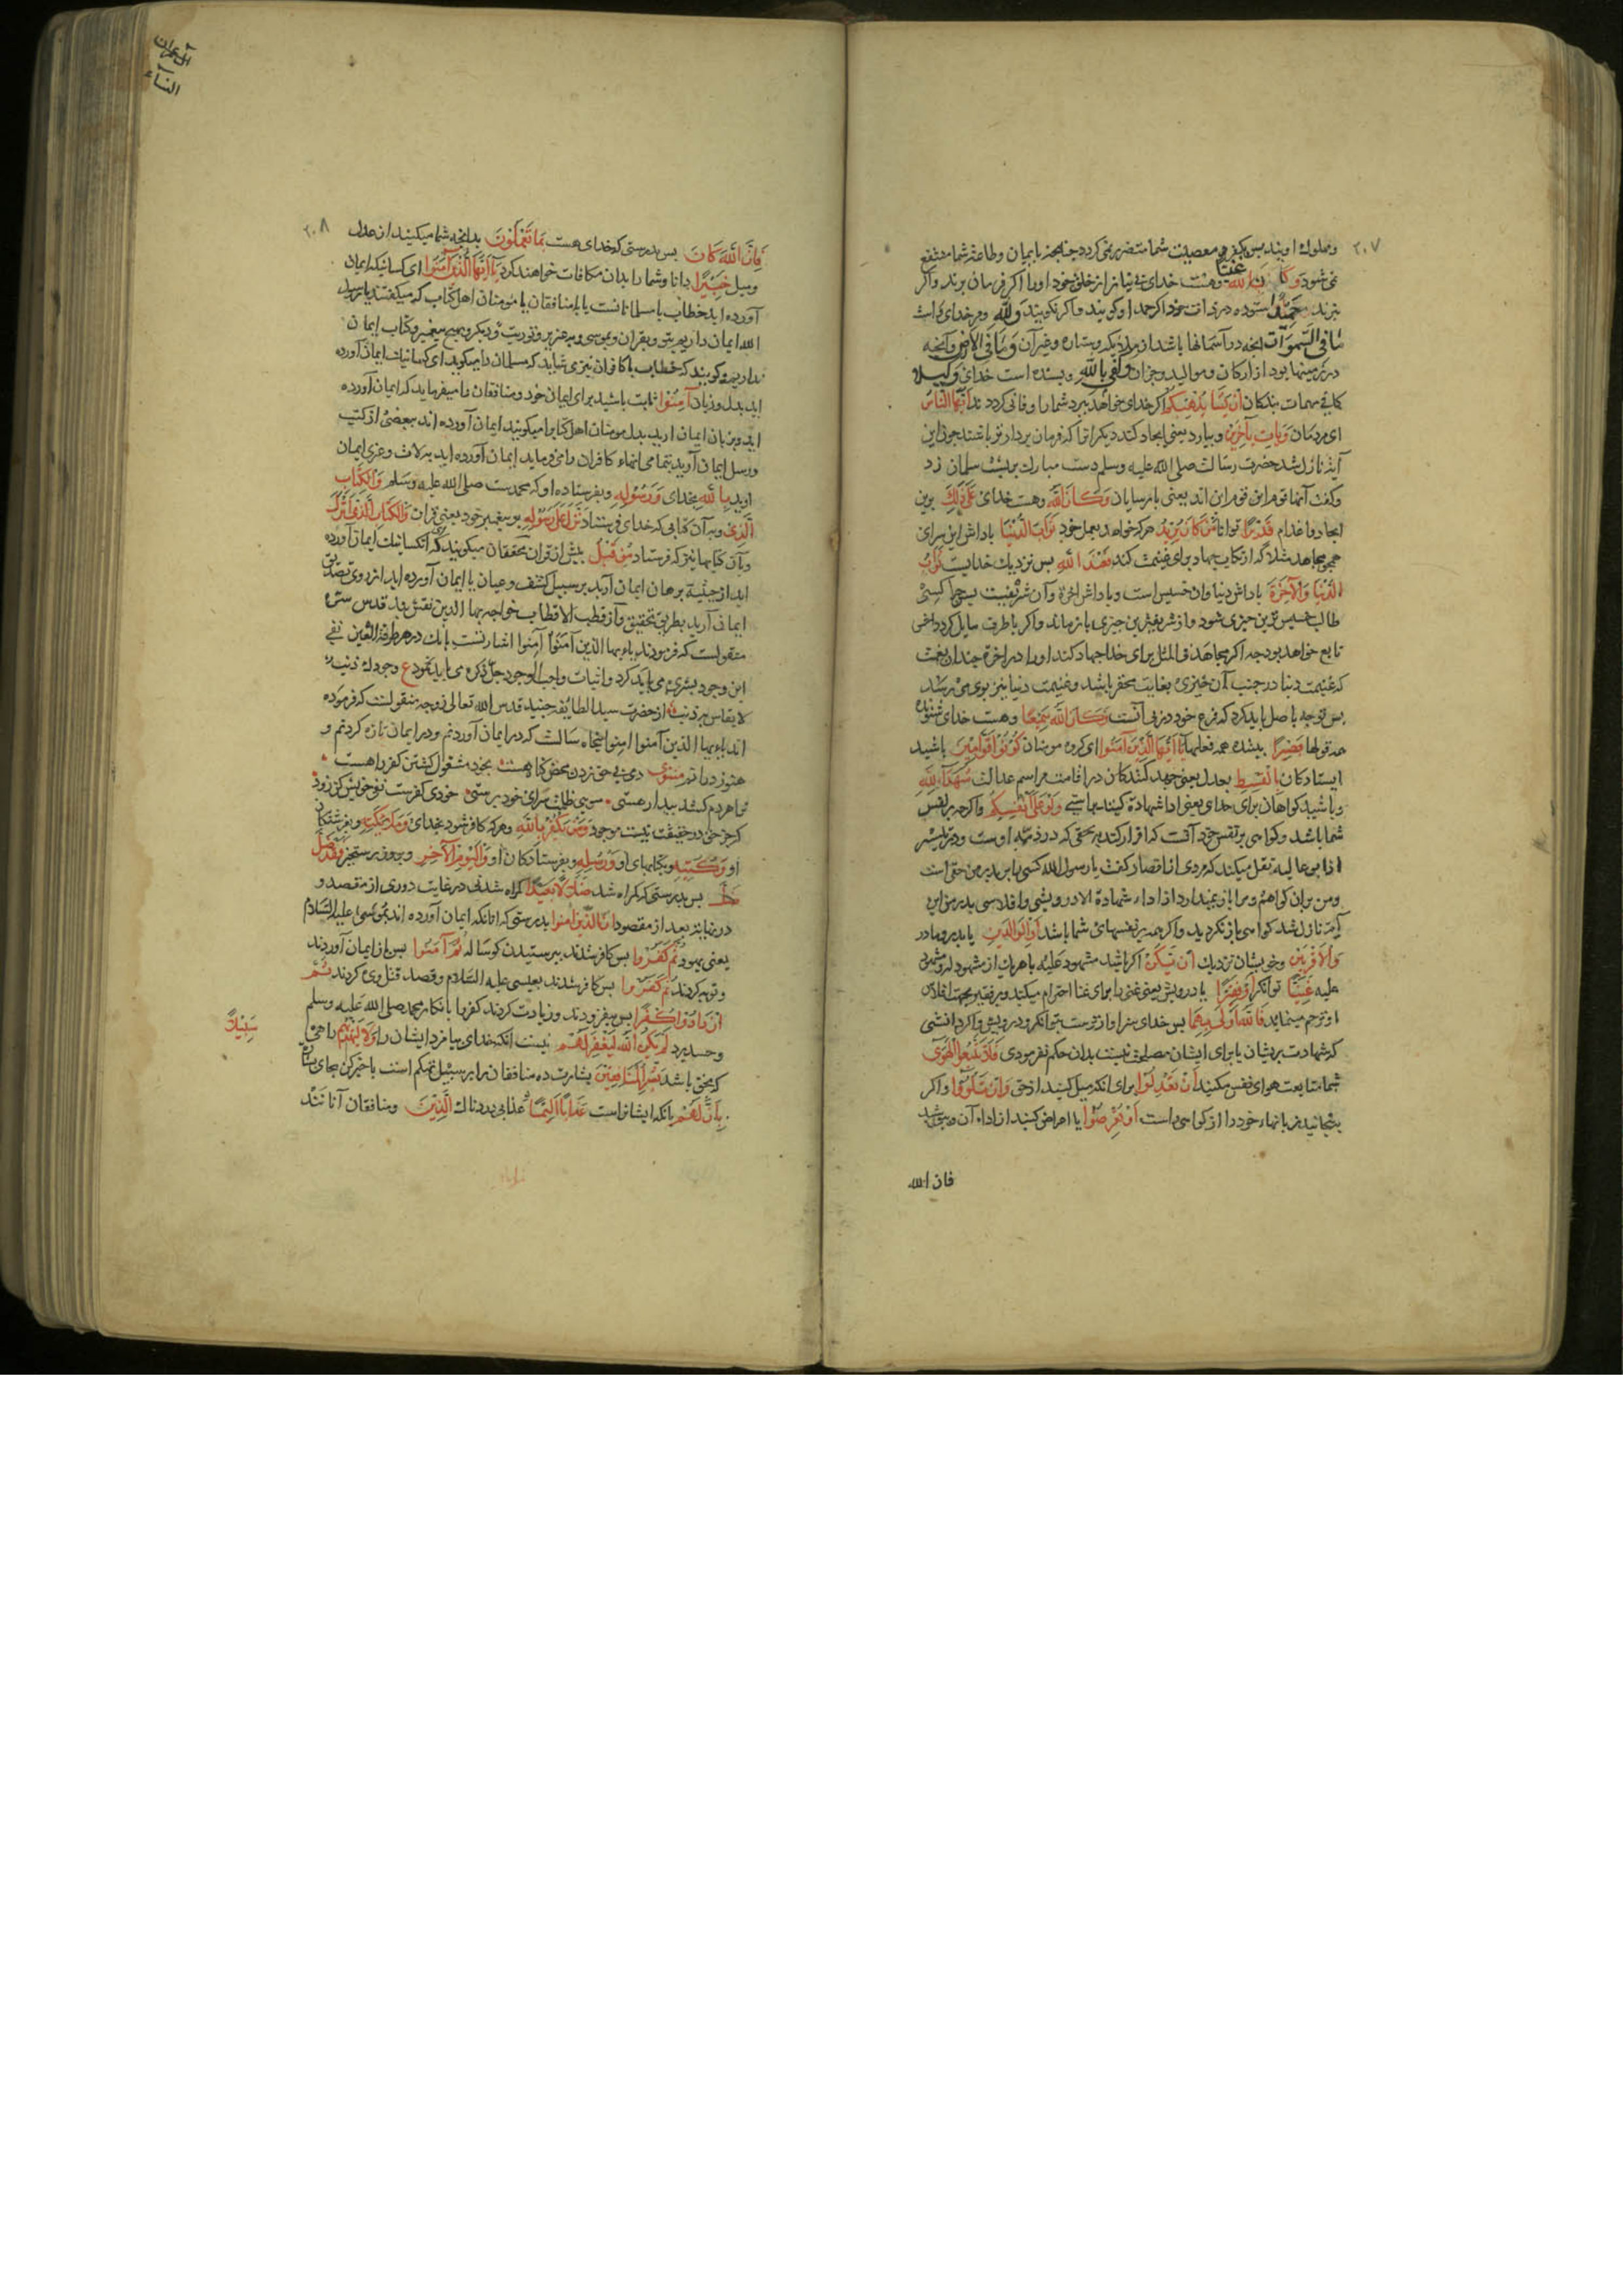 ۲۰۷
ومملوك اویند پس بكفر و معصیت شما متضرر نمیگردد چنانچه بایمان و طاعت شما منتفع
نمی شود وَكَانَ اللهُ غَنِيًّا وهست خدای بی نیاز از خلق خود اورا اگر فرمان برند واگر
نبرند حَمِيدًا ستوده در ذات خود اگر حمد او گویند واگر نگویند وَلِلّٰهِ ومر خدای راست
مَا فِي السَّمٰوَاتِ آنچه در آسمانها باشد از ملایكه وستاره وغیر آن وَمَا فِي الْأَرْضِ وآنچه
در زمینها بود از اركان وموالید وجز آن وَكَفٰى بِاللهِ وبسنده است خدای وَكِيلًا
كافی مهمات بندكان اِنْ يَشَأْ يُذْهِبْكُمْ اگر خدای خواهد ببرد شما را وفانی كردد اند اَيُّهَا النَّاسُ
ای مردمان وَيَأْتِ بِآخَرِينَ وبیارد یعنی ایجاد كند دیگرانرا كه فرمان بردارتر باشند چون این
آیة نازل شد حضرت رسالت صلی الله علیه وسلم دست مبارك بر پشت سلمان زد
وگفت آنها قوم این قوم این اند یعنی پارسایان وَكَانَ اللهُ وهست خدای عَلٰى ذٰلِكَ برین
ایجاد واعدام قَدِيرًا توانا مَنْ كَانَ يُرِيدُ هر كه خواهد بعمل خود ثَوَابَ الدُّنْيَا پاداش این سرای
همچو مجاهد مثلا كه ارتكاب جهاد برای غنیمت كند فَعِنْدَ اللهِ پس نزدیك خدایست ثَوَابُ
الدُّنْيَا وَالْآخِرَةِ پاداش دنیا وآن خسیس است وپاداش اخرة وآن شریفست پس چرا كسی
طالب خسیس ترین چیزی شود واز شریفترین چیزی باز ماند واگر باطرف مایل كردد اخس
تابع خواهد بود چه اگر مجاهد فی المثل برای خدا جهاد كند اورا در اخرة چندان نعمت
كه غنیمت دنیا در جنب آن چیزی بغایت محقر باشد وغنیمت دنیا نیز بوی می رساند
پس توجه باصل باید كرد كه فرع خود در پی آنست وَكَانَ اللهُ سَمِيعًا وهست خدای شنونده
همه قولها بَصِيرًا بیننده همه فعلها يَا أَيُّهَا الَّذِينَ آمَنُوا ای گروه مومنان كُونُوا قَوَّامِينَ باشید
ایستادكان بِالْقِسْطِ بعدل یعنی جهد كنندكان در اقامت مراسم عدالت شُهَدَاءَ لِلّٰهِ
وباشید گواهان برای خدای یعنی ادا شهادة كنید براستی وَلَوْ عَلٰى أَنْفُسِكُمْ واگرچه بر نفس
شما باشد وگواهی بر نفس خود آنست كه اقرار كند بر حقی كه در ذمه اوست
ومن بران گواهم ومرا باز میدارد از اداء شهادة الا درویشی وافلاسی پدر من این
آیة نازل شد گواهی باز نگردید واگرچه بر نفسهای شما باشد أَوِ الْوَالِدَيْنِ یا پدر ومادر
وَالْأَقْرَبِينَ وخویشان نزدیك اِنْ يَكُنْ اگر باشد مشهود علیه یا هر یك از مشهود له ومشهود
علیه غَنِيًّا توانگر أَوْ فَقِيرًا یا درویش یعنی غنی را برای غنا احترام میكنید وبر فقیر بجهت افلاس
او ترحم مینمایید فَاللهُ أَوْلٰى بِهِمَا پس خدای سزاوارترست بتوانگر ودرویش واگر دانستی
كه شهادت بریشان یا برای ایشان مصلحت نیست بدان حكم نفرمودی فَلَا تَتَّبِعُوا الْهَوٰى
شما متابعت هوای نفس مكنید أَنْ تَعْدِلُوا برای انكه میل كنید از حق وَإِنْ تَلْوُوا واگر
بپیچانید زبانهاء خود را از گواهی راست أَوْ تُعْرِضُوا یا اعراض كنید از اداء آن
فان الله
آل عمران
النساء
۲۰۸
فَإِنَّ اللهَ كَانَ پس بدرستی كه خدای هست بِمَا تَعْمَلُونَ بدانچه شما میكنید از عدل
ومیل خَبِيرًا دانا وشما را بدان مكافات خواهند كرد يَا أَيُّهَا الَّذِينَ آمَنُوا ای كسانیكه ایمان
آورده اید خطاب با مسلمانانست یا با منافقان یا مومنان اهل كتاب كه میگفتند یا رسول
الله ایمان داریم بتو وبقران وبموسی وبعزیر وتوریت ودیگر بهیچ پیغمبر وكتاب ایمان
نداریم وگویند كه خطاب با كافران نیز می شاید كه مسلمانرا میگوید ای كسانیكه ایمان آورده
اید بدل وزبان آمِنُوا ثابت باشید برای ایمان خود ومنافقان را میفرماید كه ایمان آورده
اید بزبان ایمان ارید بدل ومومنان اهل كتابرا میگویند ایمان آورده اند ببعضی از كتب
ورسل ایمان آرید بتمامی انها وكافران را می فرماید ایمان آورده اید بلات وعزی ایمان
ارید بِاللهِ بخدای وَرَسُولِهِ وبفرستاده او كه محمدست صلی الله علیه وسلم وَالْكِتَابِ
الَّذِي وبه آن كتابی كه خدای فرستاد نَزَّلَ عَلٰى رَسُولِهِ بر پیغمبر خود یعنی قران وَالْكِتَابِ الَّذِي أَنْزَلَ
وبآن كتابها نیز كه فرستاد مِنْ قَبْلُ پیش از قران محققان میگویند كه ای كسانیكه ایمان آورده
اید از حیثیة برهان ایمان آرید بر سبیل كشف وعیان یا ایمان آورده اید از روی تصدیق
ایمان آرید بطریق تحقیق واز قطب الاقطاب خواجه بهاء الدین نقش بند قدس سره
منقولست كه فرمودند یا ایها الذین آمَنُوا آمِنُوا اشارتست بانك در هر طرفة العین نفی
این وجود بشری می باید كرد واثبات واجب الوجود جل ذكره می باید نمود ع وجودك ذنب
لا یقاس به ذنب از حضرت سید الطایفه جنید قدس الله تعالی روحه منقولست كه فرموده
اند یا ایها الذین آمنوا امنوا پنجاه سالست كه در ایمان آوردنم ودر ایمان تازه كردنم و
هنوز در اثر مثنوی دمی بی حق زدن محض گناهست بخود مشغول گشتن كفر راهست
كه جز حق در حقیقت نیست موجود وَمَنْ يَكْفُرْ بِاللهِ وهر كه كافر شود بخدای وَمَلَائِكَتِهِ وبفرشتكان
او وَكُتُبِهِ وبكتابهای او وَرُسُلِهِ وبفرستادكان او وَالْيَوْمِ الْآخِرِ وبروز رستخیز فَقَدْ ضَلَّ
پس بدرستی كه گمراه شد ضَلَالًا بَعِيدًا گمراه شدنی در غایت دوری از مقصد و
درنیابند بعد از مقصود اِنَّ الَّذِينَ آمَنُوا بدرستی كه انانكه ایمان آورده اند بموسی علیه السلام
یعنی یهود ثُمَّ كَفَرُوا پس كافر شدند بپرستیدن گوساله ثُمَّ آمَنُوا پس باز ایمان آوردند
وتوبه كردند ثُمَّ كَفَرُوا پس كافر شدند بعیسی علیه السلام وقصد قتل وی كردند ثُمَّ
ازْدَادُوا كُفْرًا پس بیفزودند وزیادت كردند كفر را بانكار محمد صلی الله علیه وسلم
وحسد برد لَمْ يَكُنِ اللهُ لِيَغْفِرَ لَهُمْ نیست انكه خدای بیامرزد ایشان را وَلَا لِيَهْدِيَهُمْ راهی
سَبِيلًا
كه بحق باشد بَشِّرِ الْمُنَافِقِينَ بشارت ده منافقان را بر سبیل تهكم است یا خبر كن بجای بشارت
بِأَنَّ لَهُمْ بانكه ایشانراست عَذَابًا أَلِيمًا عذابی دردناك الَّذِينَ ومنافقان آنانند